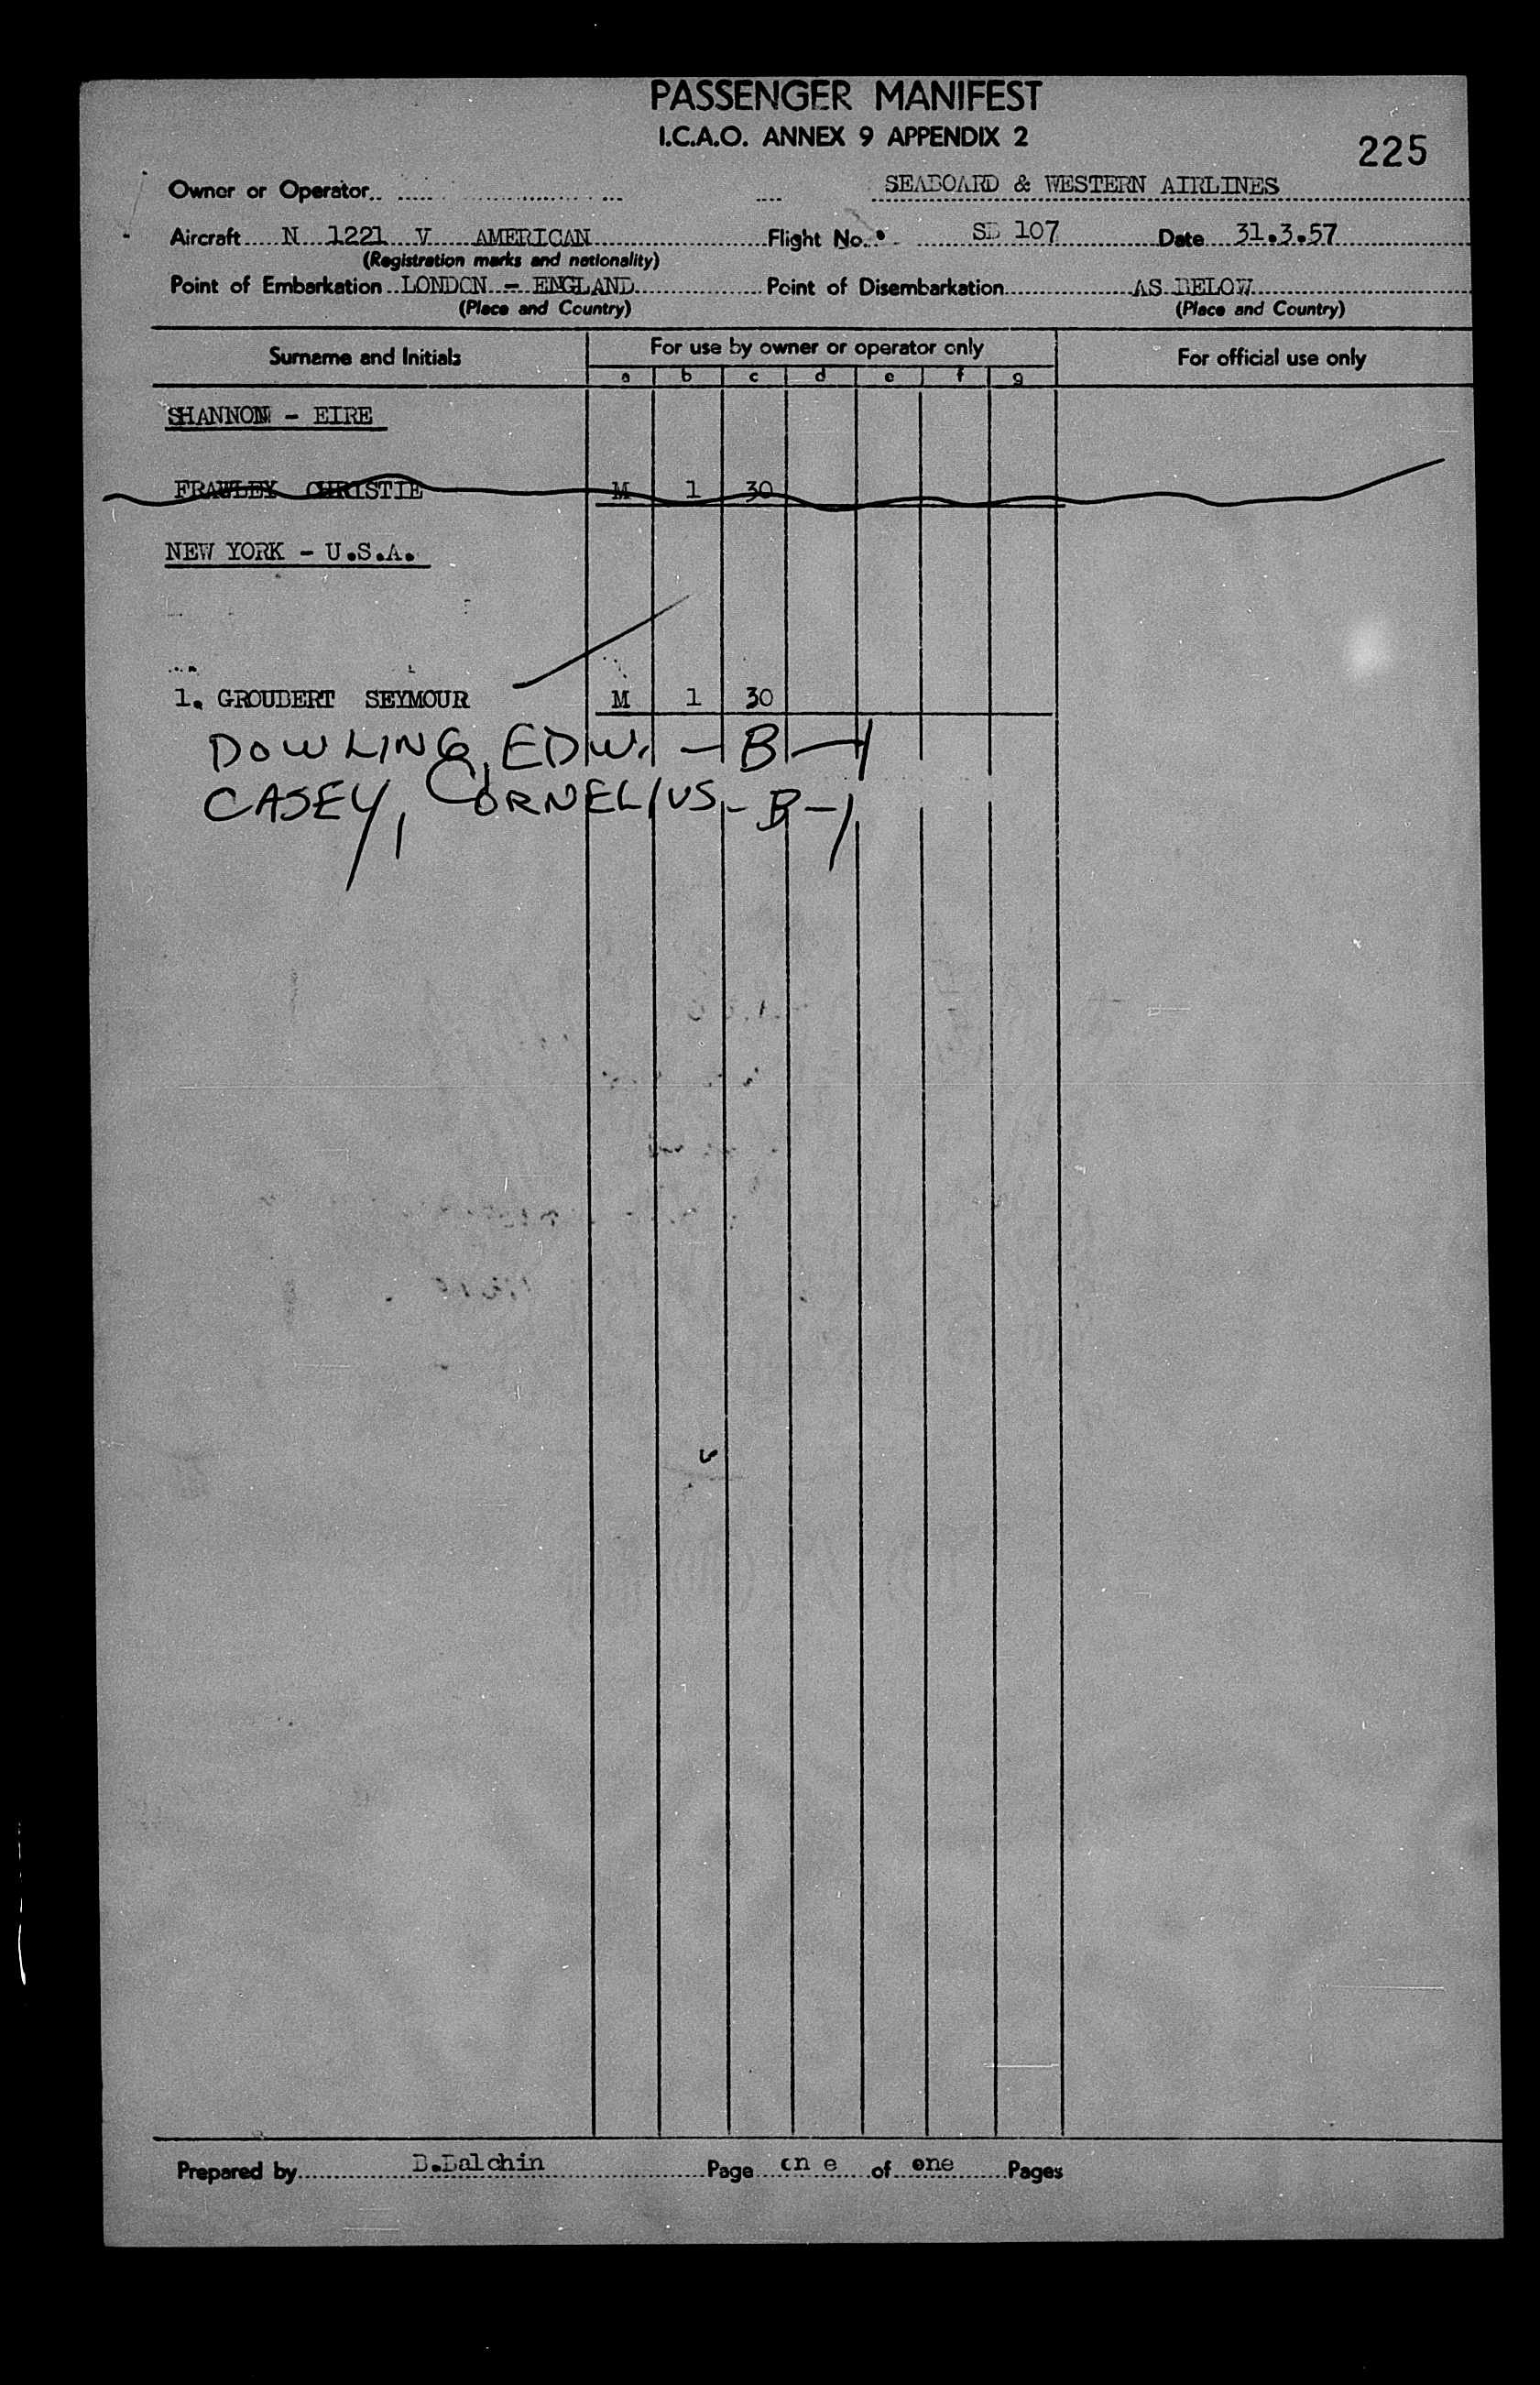 PASSENGER MANIFEST
I.C.A.O. ANNEX 9 APPENDIX 2
225
Owner or Operator SEABOARD & WESTERN AIRLINES
Aircraft N 1221 V AMERICAN Flight No. SB 107 Date 31.3.57
(Registration marks and nationality)
Point of Embarkation LONDON - ENGLAND Point of Disembarkation AS BELOW
(Place and Country) (Place and Country)
Surname and Initials For use by owner or operator only For official use only
a b c d e f g
SHANNON - EIRE
FRAWLEY CHRISTIE M 1 30
NEW YORK - U.S.A.
1. GROUBERT SEYMOUR M 1 30
DOWLING, EDW. - B - 1
CASEY, CORNELIUS - B - 1
Prepared by B.Balchin Page one of one Pages